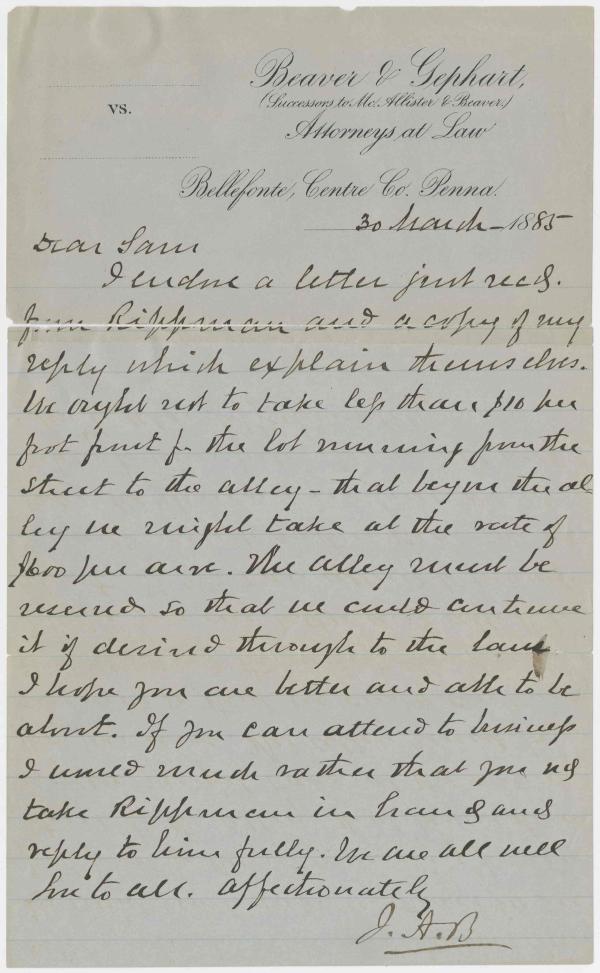 VS.
Beaver & Gephart,
(Successors to Mc. Allister & Beaver,)
Attorneys at Law
Bellefonte, Centre Co. Penna.
30 March 1885
Dear Sam
I endose a letter just recd.
from Rippman and a copy of my
reply which explain themselves.
We ought not to take less than $10 per
foot front for the lot running from the
street to the alley - that beyon the al-
ley we might take at the rate of
$600 per acre. The alley must be
reserved so that we could continue
it if desired through to the
I hope you are better and able to be
about. If you can attend to business
I would much rather that you
take Rippman in hand and
reply to him fully. We are all well
Love to all. Affectionately
J. A. B